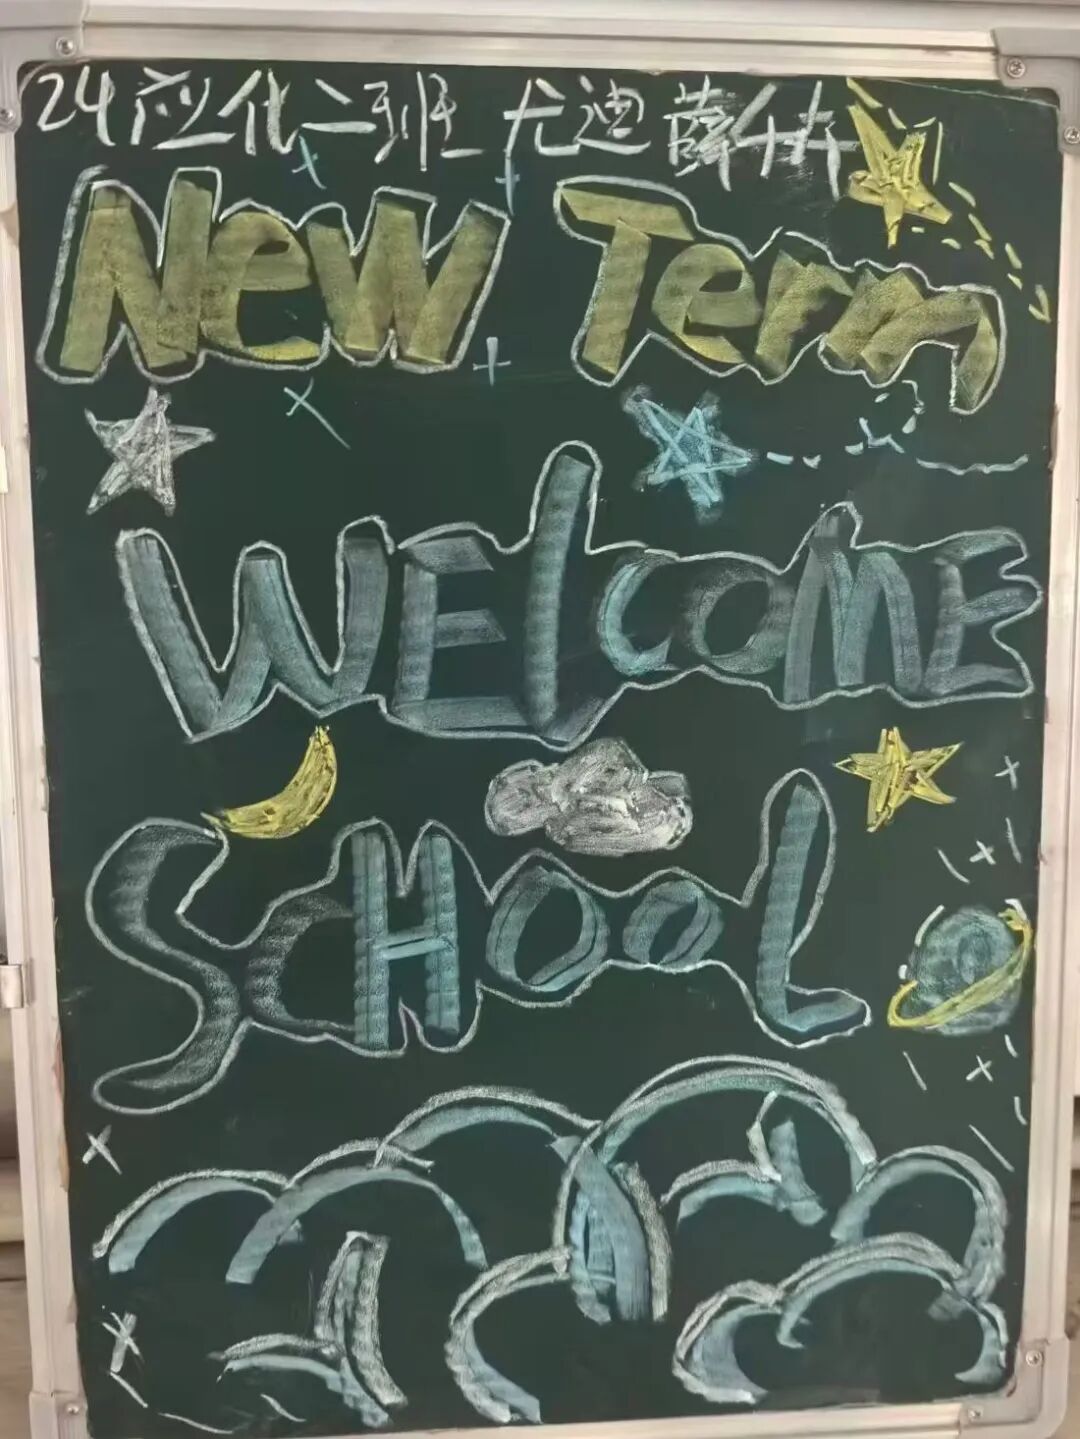 24应化二班 尤迪 薛千卉
New Term
WElcOME
ScHOOL